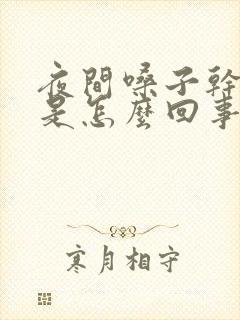 夜間嗓子幹
是怎麼回事
寒月相守